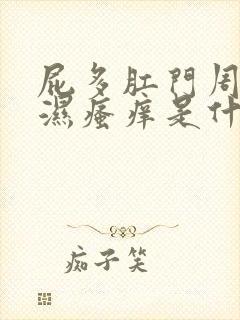 屁多肛門周
濕瘙痒是什
痴子笑